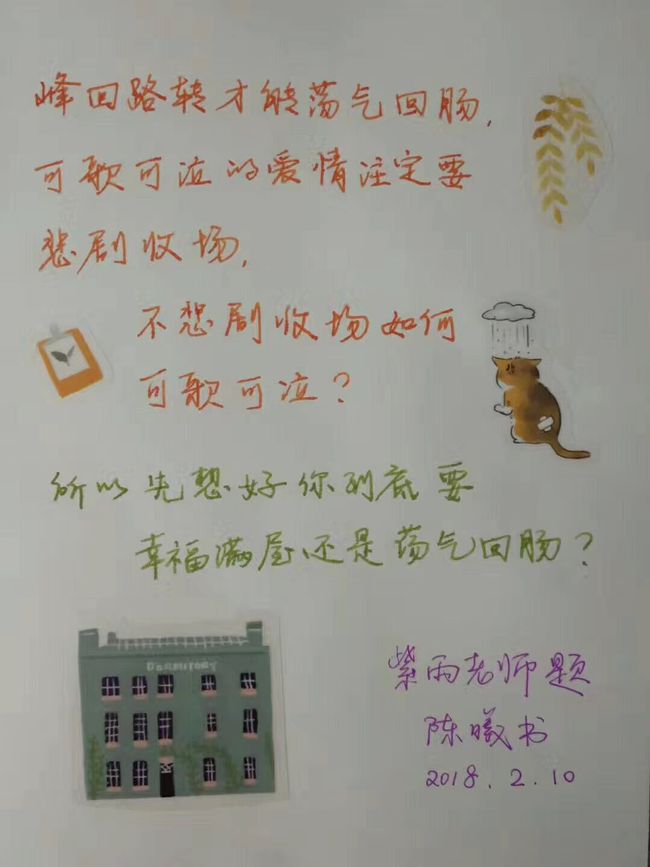 峰回路转才能荡气回肠，
可歌可泣的爱情注定要
悲剧收场，
不悲剧收场如何
可歌可泣？
所以先想好你到底要
幸福满屋还是荡气回肠？
DORMITORY
紫雨老师题
陈曦书
2018.2.10